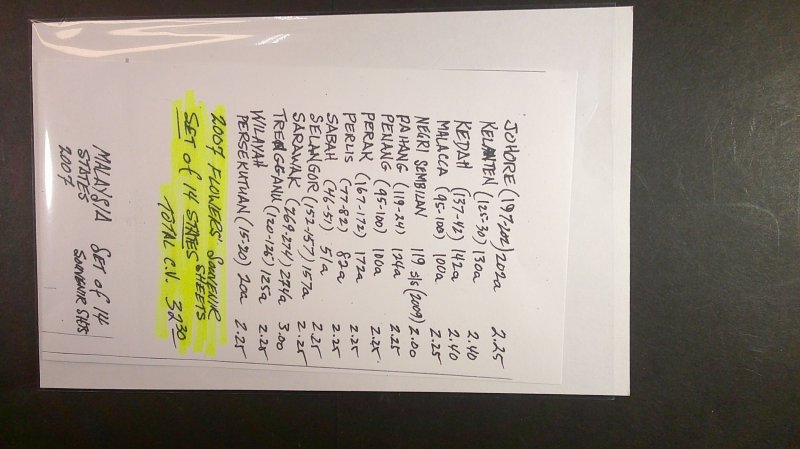 JOHORE (197-202) 202a 2.25
KELANTEN (125-30) 130a 2.40
KEDAH (137-42) 142a 2.40
MALACCA (95-100) 100a 2.25
NEGRI SEMBILAN 119 s/s (2009) 2.00
PAHANG (119-24) 124a 2.25
PENANG (95-100) 100a 2.25
PERAK (167-172) 172a 2.25
PERLIS (77-82) 82a 2.25
SABAH (46-51) 51a 2.25
SELANGOR (152-157) 157a 2.25
SARAWAK (269-274) 274a 3.00
TRENGGANU (120-126) 125a 2.25
WILAYAH
PERSEKUTUAN (15-20) 20a 2.25
2007 FLOWERS' SOUVENIR
SET OF 14 STATES SHEETS
TOTAL C.V. 32.30
MALAYSIA SET OF 14
STATES SOUVENIR SHTS
2007